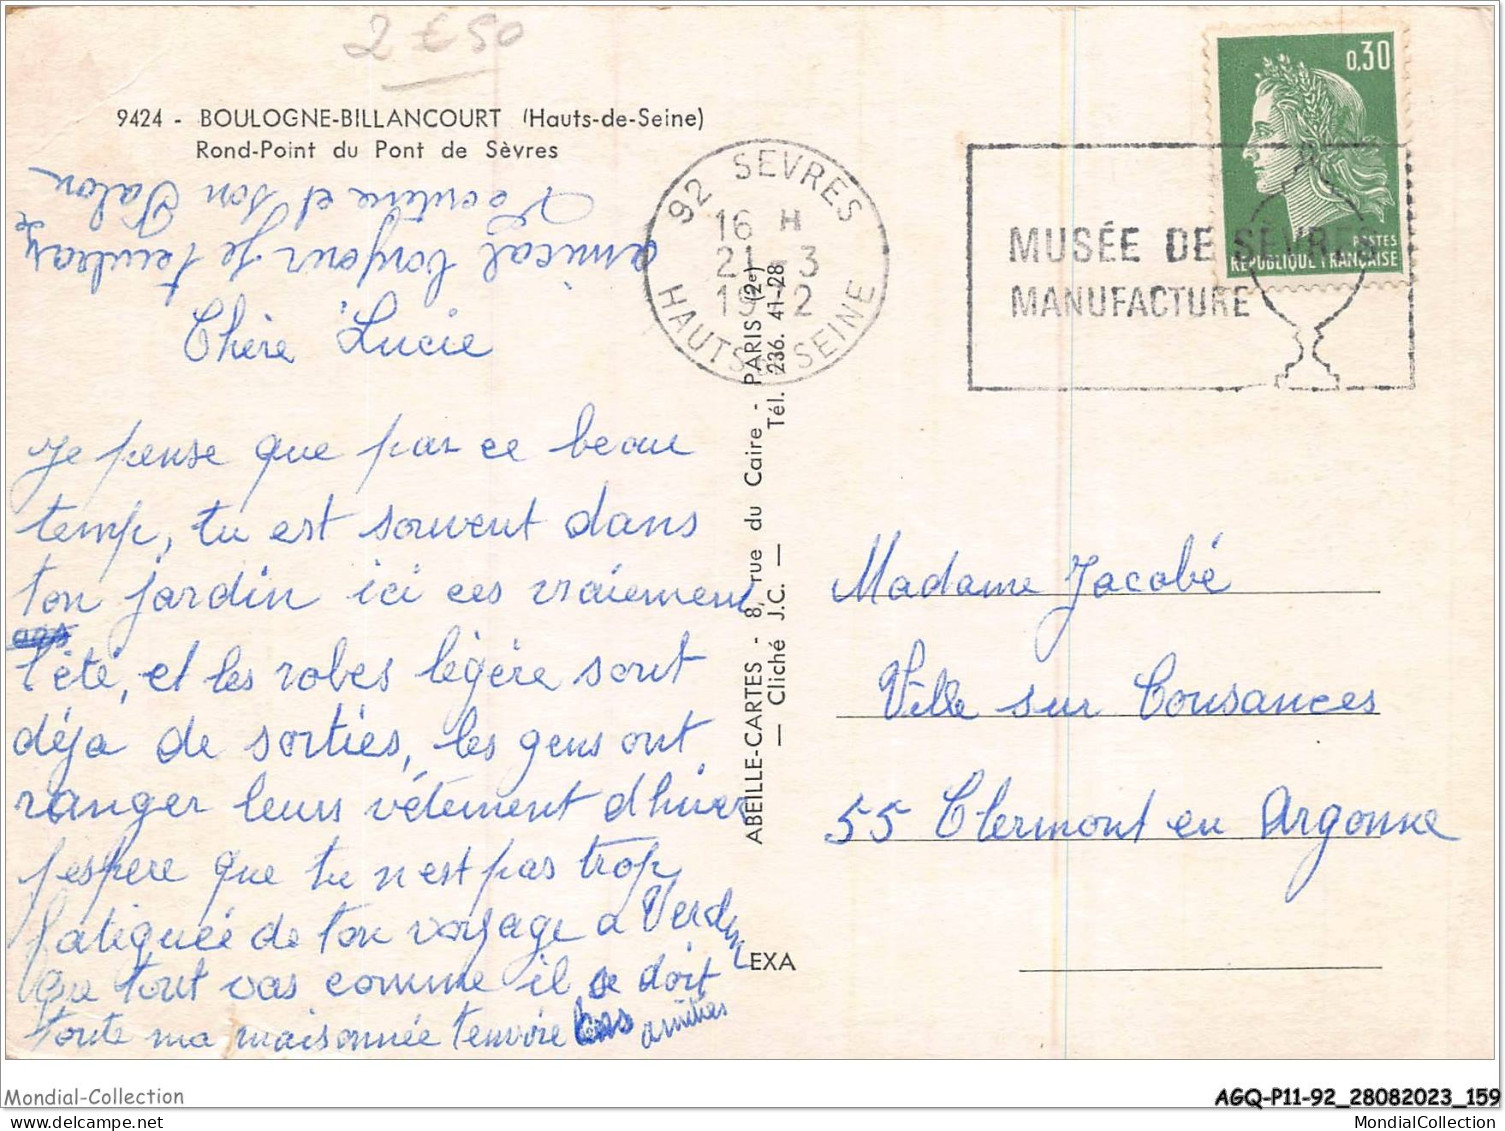 2 € 50
9424 - BOULOGNE-BILLANCOURT (Hauts-de-Seine)
Rond-Point du Pont de Sèvres
Chère Lucie
Je pense que par ce beau
temp, tu est souvent dans
ton jardin ici ces vraiement
l'été, et les robes légère sont
déja de sorties, les gens ont
ranger leurs vétement d'hiver
j'espere que tu n'est pas trop
fatiguée de ton voyage a Verdun
que tout vas comme il se doit
toute ma maisonnée t'envoie ses amitiés
amical bonjour je
et son Salon
92 SEVRES
16 H
21 - 3
1972
HAUTS DE SEINE
MUSÉE DE SÈVRES
MANUFACTURE
0,30
POSTES
REPUBLIQUE FRANÇAISE
ABEILLE-CARTES - 8, rue du Caire - PARIS (2e)
— Cliché J.C. — Tél. 236. 41-28
EXA
Madame Jacobé
Ville sur Cousances
55 Clermont en Argonne
Mondial-Collection
AGQ-P11-92_28082023_159
MondialCollection